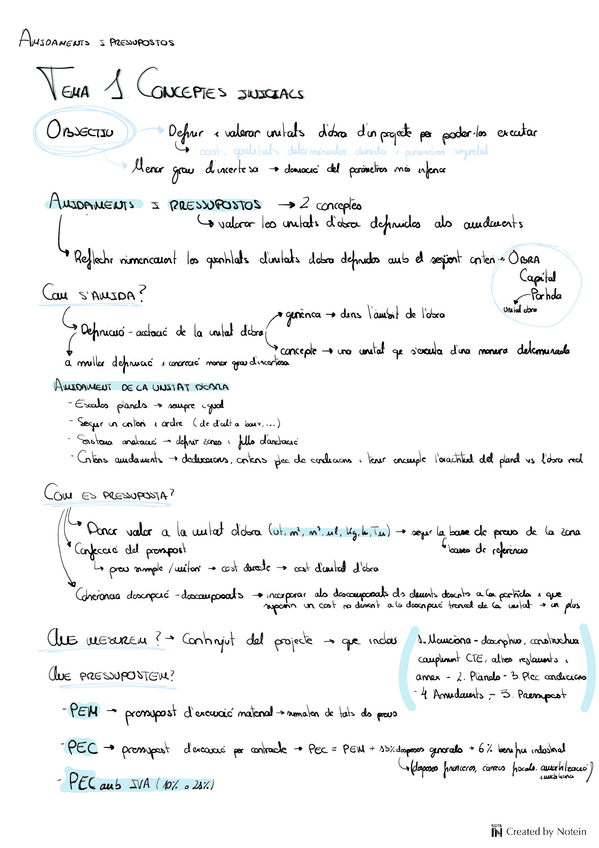 AMIDAMENTS I PRESSUPOSTOS
TEMA 1 CONCEPTES INICIALS
OBJECTIU → Definir i valorar unitats d'obra d'un projecte per poder-les executar
↳ cost, qualitats determinades, durada i paràmetres seguretat
Menor grau d'incertesa → definició del paràmetres més inferior
AMIDAMENTS I PRESSUPOSTOS → 2 conceptes
↳ valorar les unitats d'obra definides als amidaments
↳ Reflectir numèricament les quantitats d'unitats d'obra definides amb el següent criteri → OBRA
Capítol
Partida
unitat obra
COM S'AMIDA?
→ gerència → dins l'àmbit de l'obra
↳ Definició - acotació de la unitat d'obra
→ concepte → una unitat que s'executa d'una manera determinada
a millor definició i concreció menor grau d'incertesa
AMIDAMENT DE LA UNITAT D'OBRA
- Escales plànols → sempre igual
- Seguir un criteri i ordre (de dalt a baix,...)
- Sistema anotació → definir zones i fulls d'anotació
- Criteris amidaments → deduccions, criteris plec de condicions i tenir en compte l'exactitud del plànol vs l'obra real
COM ES PRESSUPOSTA?
→ Donar valor a la unitat d'obra (ut, m², m³, ml, kg, h, Tn) → seguir la base de preus de la zona
Confecció del pressupost ↳ bases de referència
↳ preu simple / unitari → cost directe → cost d'unitat d'obra
Coherència descripció - descomposats → incorporar als descomposats els elements descrits a la partida i que
suposin un cost no descrit a la descripció general de la unitat → un plus
QUE MESUREM? → Contingut del projecte → que inclou
1. Memòria - descriptiva, constructiva
compliment CTE, altres reglaments i
annex - 2. Plànols - 3 Plec condicions
- 4 Amidaments - 5. Pressupost
QUE PRESSUPOSTEM?
- PEM → pressupost d'execució material → sumatori de tots els preus
- PEC → pressupost d'execució per contracte → PEC = PEM + 13% despeses generals + 6% benefici industrial
↳ (despeses financeres, càrrecs fiscals, amortització)
- PEC amb IVA (10% o 21%)
NOTE IN Created by Notein